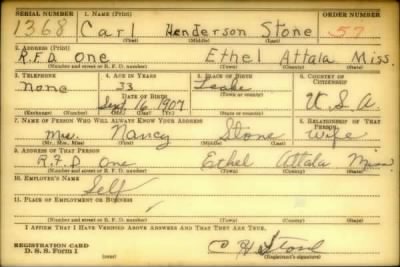 SERIAL NUMBER 1. NAME (Print) ORDER NUMBER
1368 Carl Henderson Stone 57
(First) (Middle) (Last)
2. ADDRESS (Print)
R.F.D. One Ethel Attala Miss.
(Number and street or R. F. D. number) (Town) (County) (State)
3. TELEPHONE 4. AGE IN YEARS 5. PLACE OF BIRTH 6. COUNTRY OF CITIZENSHIP
none 33 Leake
DATE OF BIRTH (Town or county)
Sept 16 1907 U.S.A
(Exchange) (Number) (Mo.) (Day) (Yr.) (State or country)
7. NAME OF PERSON WHO WILL ALWAYS KNOW YOUR ADDRESS 8. RELATIONSHIP OF THAT PERSON
Mrs. Nancy Stone wife
(Mr., Mrs., Miss) (First) (Middle) (Last)
9. ADDRESS OF THAT PERSON
R.F.D One Ethel Attala Miss
(Number and street or R. F. D. number) (Town) (County) (State)
10. EMPLOYER'S NAME
Self
11. PLACE OF EMPLOYMENT OR BUSINESS
(Number and street or R. F. D. number) (Town) (County) (State)
I AFFIRM THAT I HAVE VERIFIED ABOVE ANSWERS AND THAT THEY ARE TRUE.
REGISTRATION CARD
D. S. S. Form 1 C H Stone
(Registrant's signature)